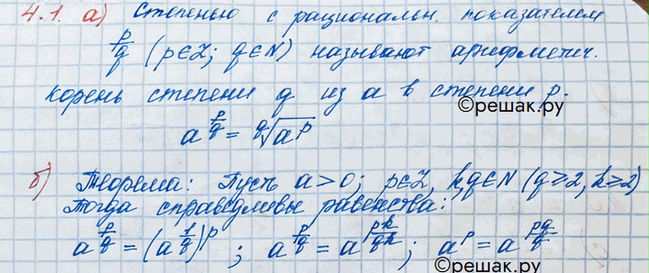 4.1. а) Степенью с рациональн. показателем
p/q (p∈Z; q∈N) называют арифметич.
корень степени q из a в степени p.
©решак.ру
a^(p/q) = ᑫ√(a^p)
б) Теорема: Пусть a>0; p∈Z, k,q∈N (q≥2, k≥2)
Тогда справедливы равенства:
a^(p/q) = (a^(1/q))^p ; a^(p/q) = a^(pk/qk) ; a^p = a^(pq/q)
©решак.ру